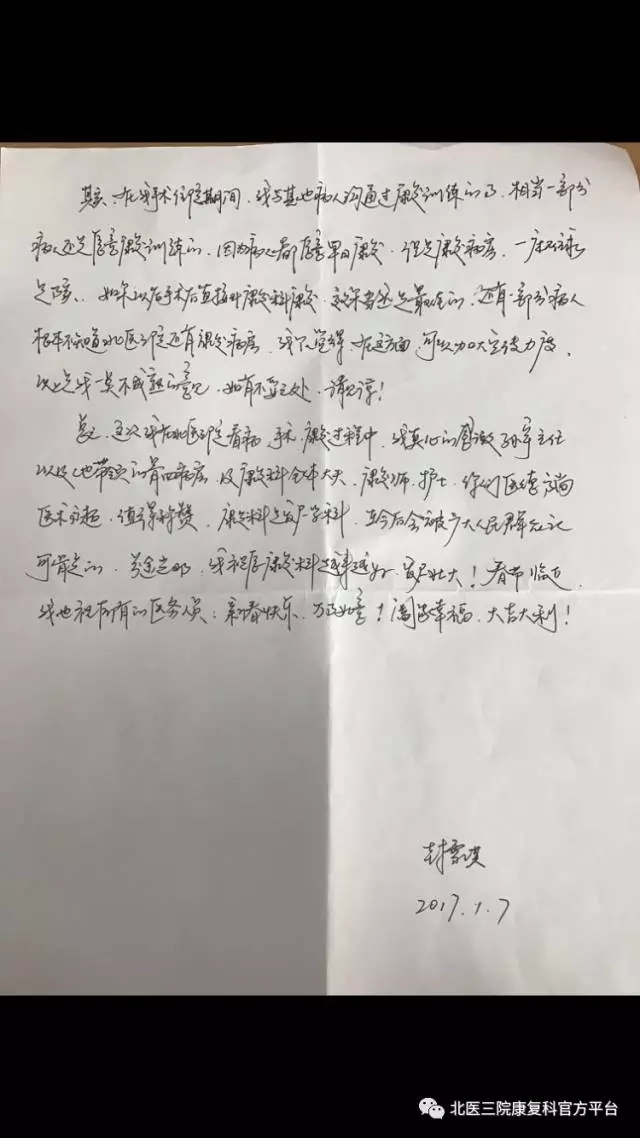 其实:在我手术住院期间,我与其他病人沟通过康复训练的事,相当一部分
病人还是愿意康复训练的,因为病人都愿意早日康复,但是康复病房,一床难求
是障。如果以后手术后直接转康复科康复,对患者是最佳的,还有一部分病人
根本不知道北医三院还有康复病房,我只觉得,在这方面,可以加大宣传力度,
以上是我一点不成熟的意见,如有不妥之处,请见谅!
总之,这次我在北医三院看病、手术、康复过程中,我真心的感谢孙宇主任
以及他带领的骨四病房,及康复科全体大夫,康复师,护士,你们医德高尚
医术高超,值得称赞,康复科是发展学科,在今后会被广大人民群众认
可肯定的,前途光明,我祝愿康复科越来越好,发展壮大!春节临近,
我也祝所有的医务人员:新春快乐,万事如意!阖家幸福,大吉大利!
2017.1.7
北医三院康复科官方平台